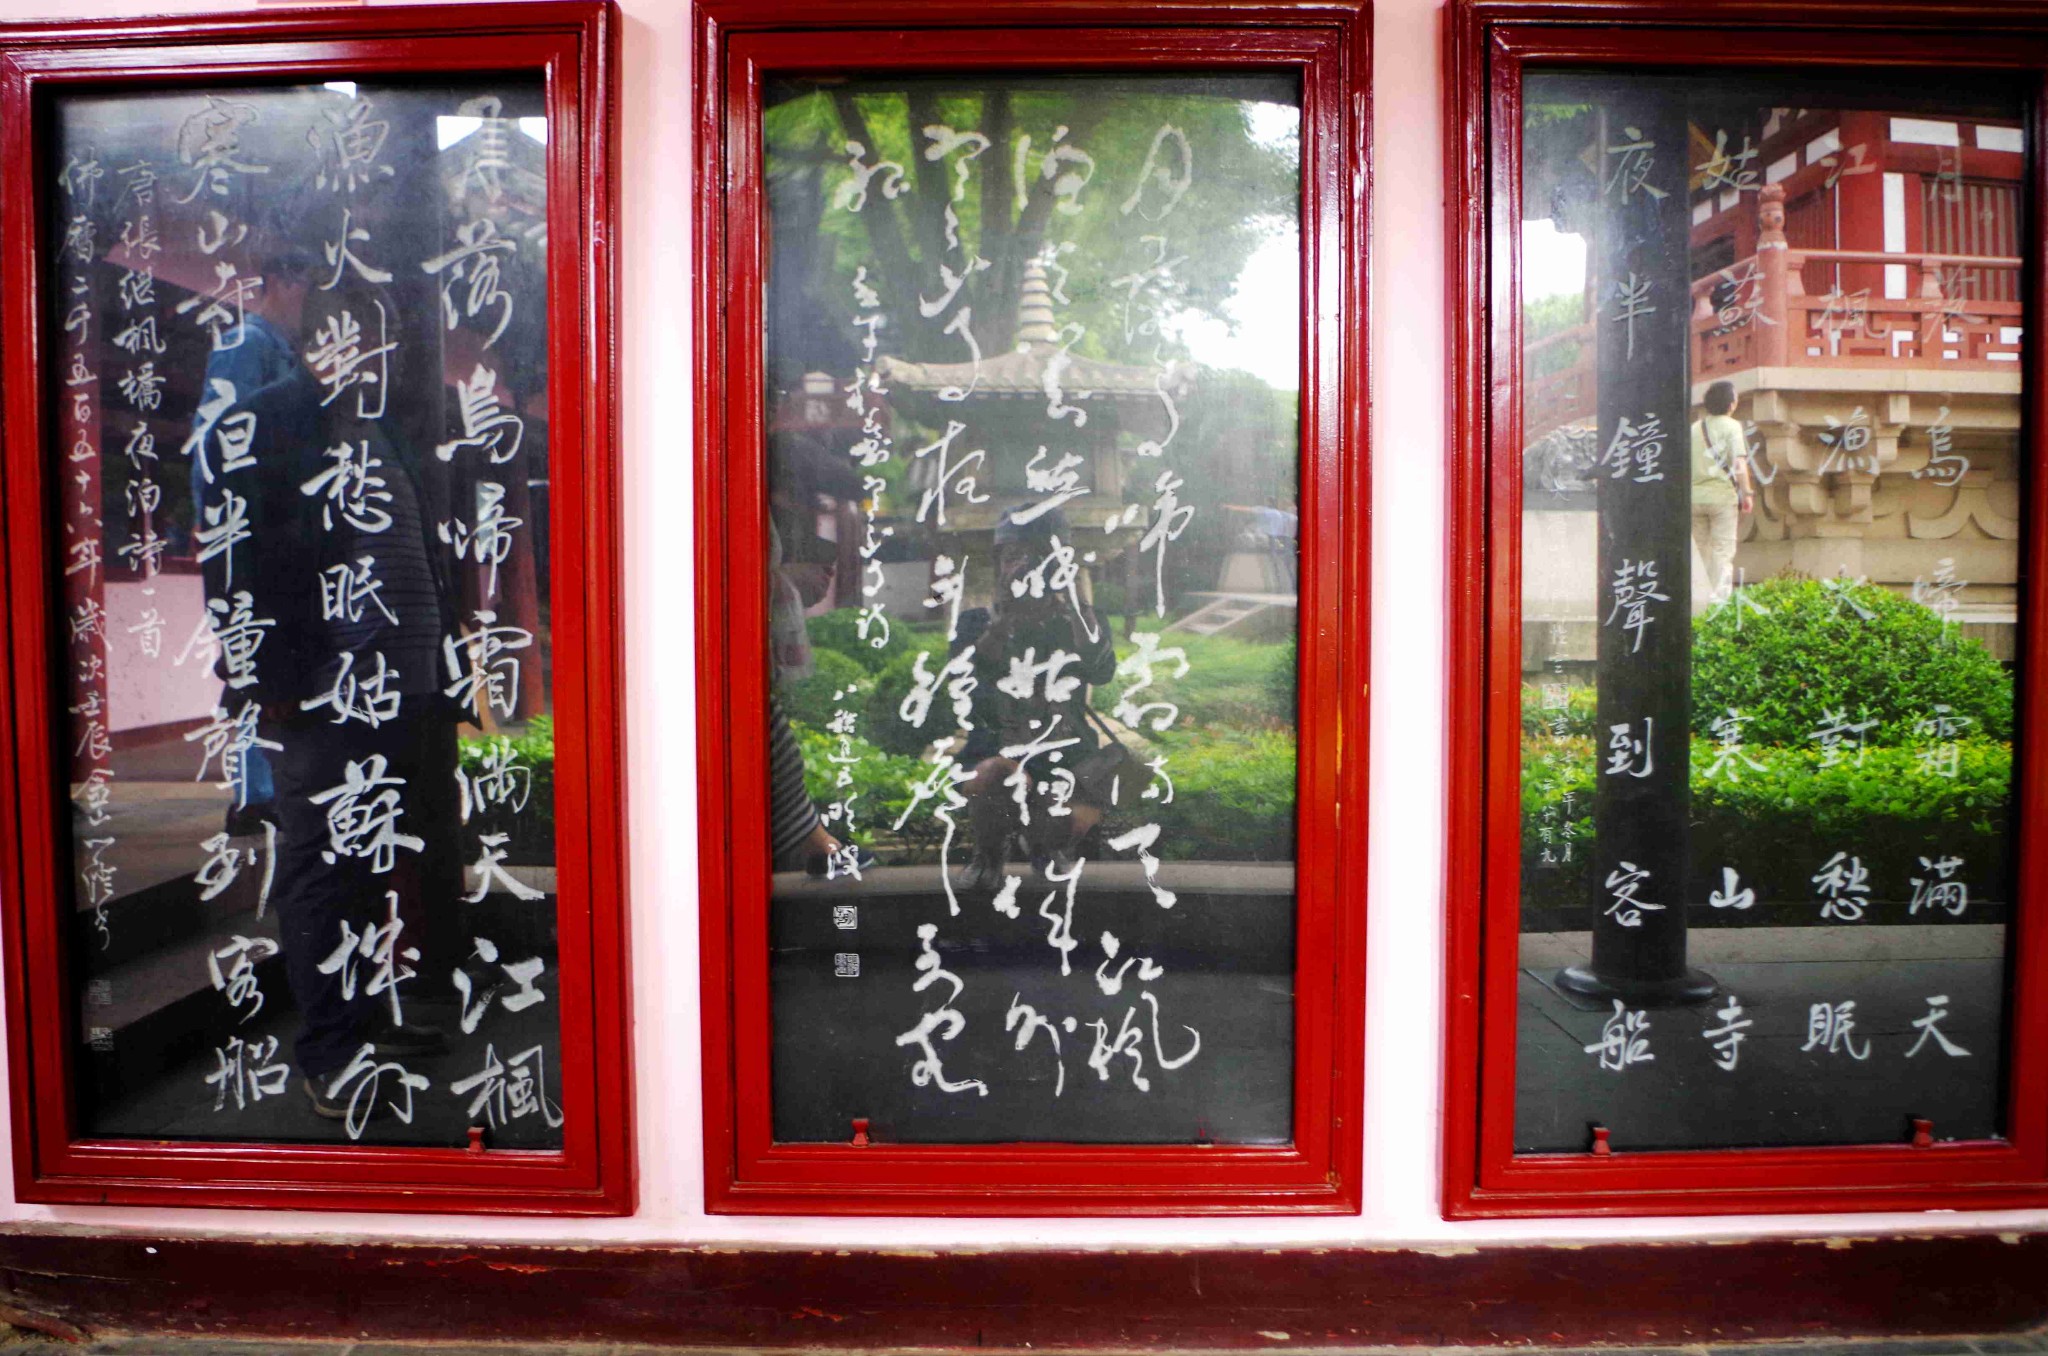 月落烏啼霜满天江楓
漁火對愁眠姑蘇城外
寒山寺夜半鐘聲到客船
唐張继楓橋夜泊詩一首
佛曆二千五百五十六年歲次壬辰金山心澄书
月落烏啼霜满天江枫
渔火对愁眠姑苏城外
寒山寺夜半鐘声到客
船
月落烏啼霜滿天
江楓漁火對愁眠
姑蘇城外寒山寺
夜半鐘聲到客船